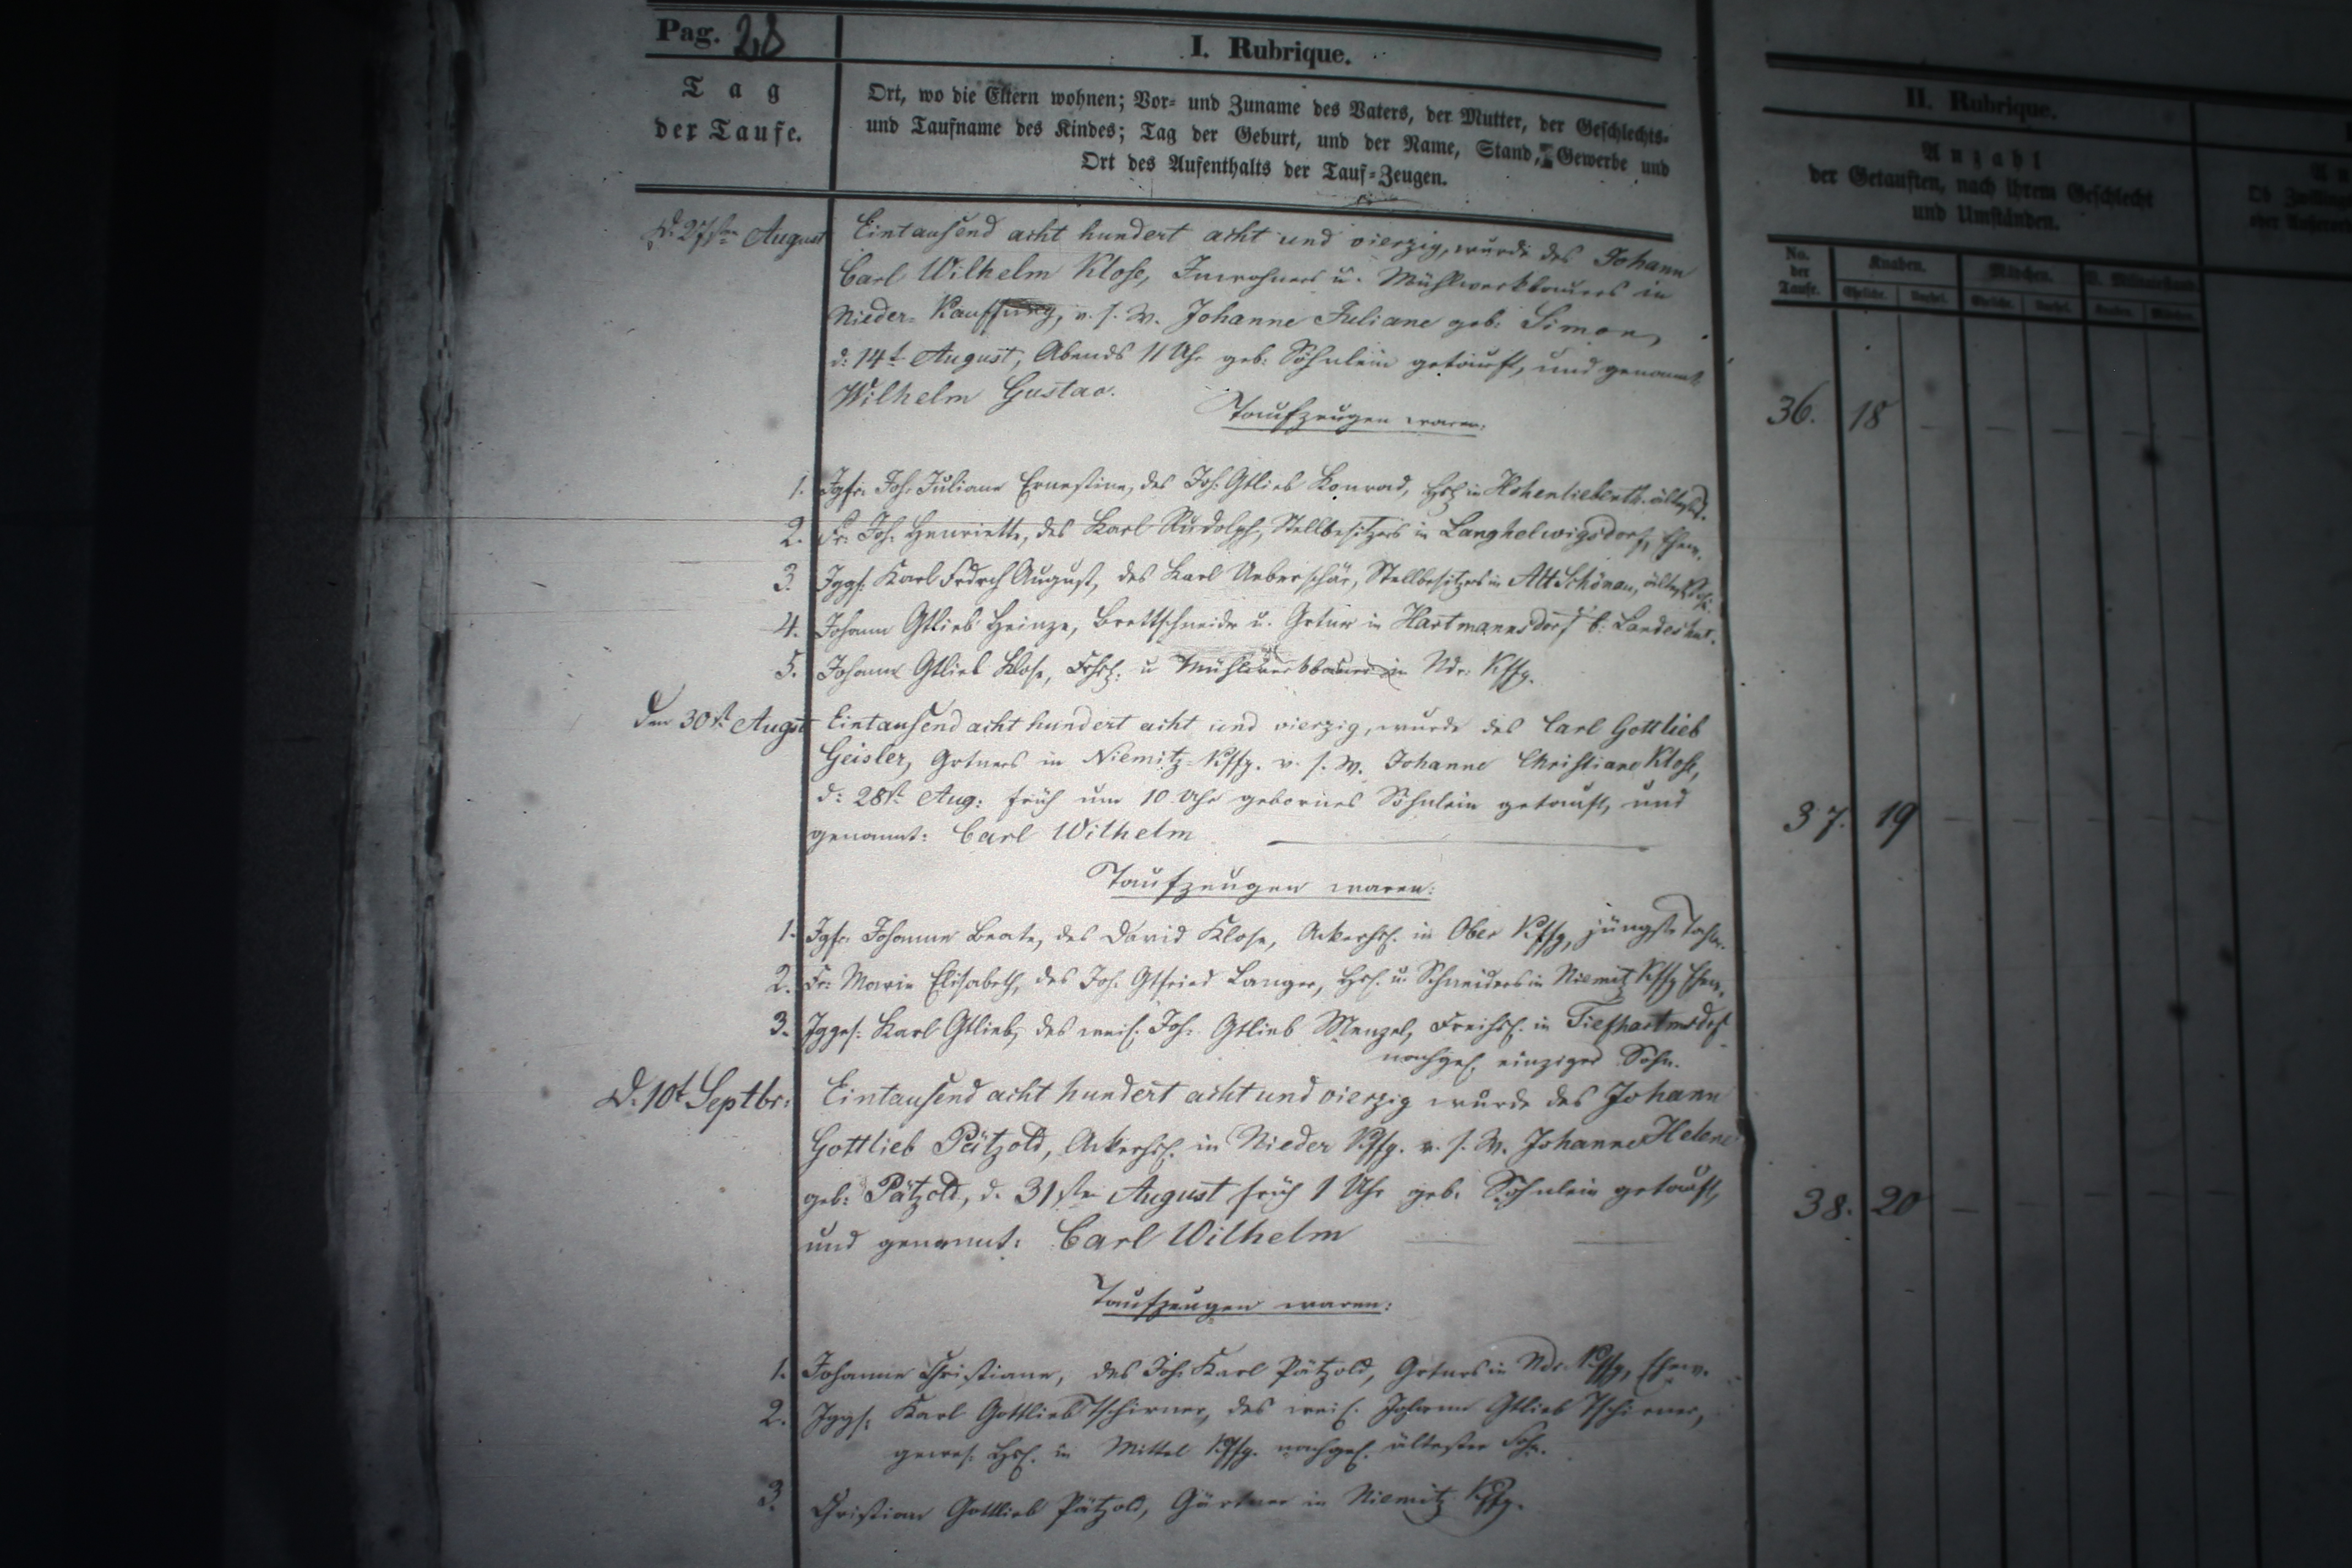 Pag. 28
I. Rubrique.
Tag
der Taufe.
Ort, wo die Eltern wohnen; Vor- und Zuname des Vaters, der Mutter, der Geschlechts-
und Taufname des Kindes; Tag der Geburt, und der Name, Stand, Gewerbe und
Ort des Aufenthalts der Tauf-Zeugen.
II. Rubrique.
Anzahl
der Getauften, nach ihrem Geschlecht
und Umständen.
No.
der
Taufe.
Knaben.
Mädchen.
Eheliche.
d: 27sten August Eintausend acht hundert acht und vierzig, wurde des Johann
Carl Wilhelm Klose, Inwohners u. Mühlwerkbauers in
Nieder-Kauffung, v. s. W. Johanne Juliane geb: Simon,
d: 14t August, Abends 11 Uhr geb: Söhnlein getauft, und genannt
Wilhelm Gustav.
Taufzeugen waren:
36. 18
1. Igfr. Joh. Juliane Ernestine, des Joh. Gtlieb Konrad, in Hohenliebenth. ältest
2. Fr. Joh. Henriette, des Karl Rudolph, Stellbesitzers in Langhelwigsdorf, Ehew.
3. Jggs. Karl Frdrch August, des Karl Ueberschär, Stellbesitzers in Alt Schönau, ältest
4. Johann Gtlieb Heinze, Brettschneider u. Grtner in Hartmannsdorf b. Landeshut.
5. Johann Gtlieb Klose, u Mühlwerkbauer in Ndr. Kffg.
Den 30st Augst Eintausend acht hundert acht und vierzig, wurde des Carl Gottlieb
Geisler, Grtners in Niemitz-Kffg. v. s. W. Johanne Christiane Klose,
d: 28st Aug: früh um 10 Uhr gebornes Söhnlein getauft, und
genannt: Carl Wilhelm
37. 19
Taufzeugen waren:
1. Igfr. Johanne Beate, des David Klose, Ackerhsl. in Ober Kffg, jüngste Tocht.
2. Fr. Marie Elisabeth, des Joh. Gtfried Langer, Hsl. u. Schneiders in Niemitz Kffg Ehew.
3. Jggs. Karl Gtlieb, des weil. Joh. Gtlieb Menzel, Freihsl. in Tiefhartmsdrf
nachgel. einziger Sohn.
D. 10t Septbr: Eintausend acht hundert acht und vierzig wurde des Johann
Gottlieb Pätzold, Ackerhsl. in Nieder Kffg. v. s. W. Johanne Helene
geb: Pätzold, d. 31sten August früh 1 Uhr geb. Söhnlein getauft,
und genannt: Carl Wilhelm
38. 20
Taufzeugen waren:
1. Johanne Christiane, des Joh. Karl Pätzold, Grtners in Ndr. Kffg, Ehew.
2. Jggs. Karl Gottlieb Tschirner, des weil. Johann Gtlieb Tschirner,
gewes. Hsl. in Mittel Kffg. nachgel. ältester Sohn.
3. Christian Gottlieb Pätzold, Gärtner in Niemitz Kffg.